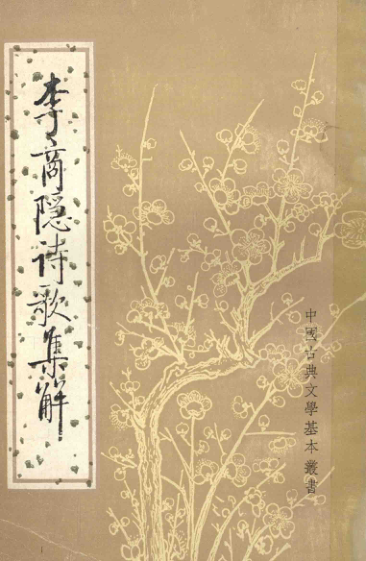 李商隐诗歌集解
中國古典文學基本叢書